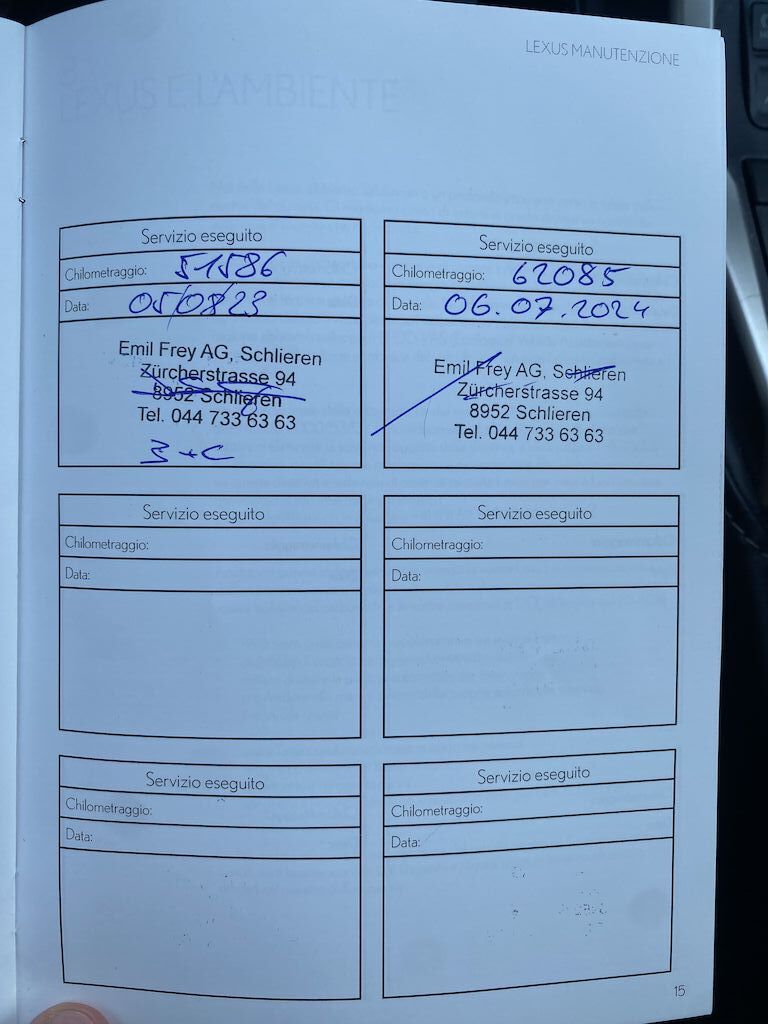 LEXUS MANUTENZIONE
LEXUS E L'AMBIENTE
Servizio eseguito
Chilometraggio: 51586
Data: 05/08/23
Emil Frey AG, Schlieren
Zürcherstrasse 94
8952 Schlieren
Tel. 044 733 63 63
Servizio eseguito
Chilometraggio: 62085
Data: 06.07.2024
Emil Frey AG, Schlieren
Zürcherstrasse 94
8952 Schlieren
Tel. 044 733 63 63
Servizio eseguito
Chilometraggio:
Data:
Servizio eseguito
Chilometraggio:
Data:
Servizio eseguito
Chilometraggio:
Data:
Servizio eseguito
Chilometraggio:
Data:
15